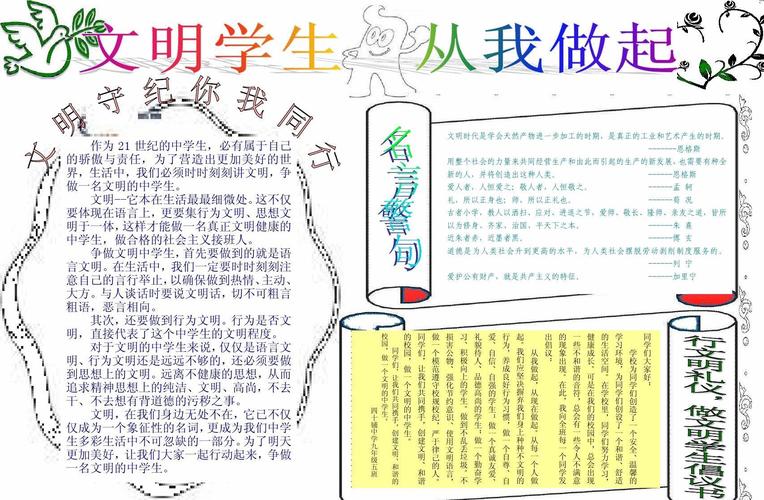 文明学生 从我做起
文明守纪你我同行
作为 21 世纪的中学生，必有属于自己
的骄傲与责任，为了营造出更加美好的世
界，生活中，我们必须时时刻刻讲文明，争
做一名文明的中学生。
文明—它本在生活最最细微处。这不仅
要体现在语言上，更要集行为文明、思想文
明于一体，这样才能做一名真正文明健康的
中学生，做合格的社会主义接班人。
争做文明中学生，首先要做到的就是语
言文明。在生活中，我们一定要时时刻刻注
意自己的言行举止，以确保做到热情、主动、
大方。与人谈话时要说文明话，切不可粗言
粗语，恶言相向。
其次，还要做到行为文明。行为是否文
明，直接代表了这个中学生的文明程度。
对于文明的中学生来说，仅仅是语言文
明、行为文明还是远远不够的，还必须要做
到思想上的文明。远离不健康的思想，从而
追求精神思想上的纯洁、文明、高尚，不去
干、不去想有背道德的污秽之事。
文明，在我们身边无处不在，它已不仅
仅成为一个象征性的名词，更成为我们中学
生多彩生活中不可忽缺的一部分。为了明天
更加美好，让我们大家一起行动起来，争做
一名文明的中学生。
名言警句
文明时代是学会天然产物进一步加工的时期，是真正的工业和艺术产生的时期。
-------恩格斯
用整个社会的力量来共同经营生产和由此而引起的生产的新发展，也需要有种全
新的人，并将创造出这种人类。 -------恩格斯
爱人者，人恒爱之；敬人者，人恒敬之。 -------孟 轲
礼，所以正身也；师，所以正礼也。 -------荀 况
古者小学，教人以洒扫、应对、进退之节，爱师、敬长、隆师、亲友之道，皆所
以为修身、齐家、治国、平天下之本。 -------朱 熹
近朱者赤，近墨者黑。 -------傅 玄
道德是为人类社会升到更高的水平，为人类社会摆脱劳动剥削制度服务的。
-------列 宁
爱护公有财产，就是共产主义的特征。 -------加里宁
行文明礼仪，做文明学生倡议书
同学们大家好，
学校为同学们创造了一个安全、温馨的
学习环境，为同学们创设了一个和谐、舒适
的生活空间。在学校里，同学们努力学习，
健康成长。可是在我们的校园中，总会出现
一些不和谐的音符，总会有一些令人不满意
的现象出现，在此，我向全班每一个同学发
出倡议：
从我做起，从现在做起，从每一个人做
起。我们应坚决摒弃我们身上种种不文明的
行为，养成良好行为习惯，做一个自尊、自
爱、自信、自强的学生，做一个真诚友爱、
礼貌待人、品德高尚的学生；做一个勤奋学
习、积极向上的学生。做到不乱丢垃圾，不
损害公物，强化节约意识，使用文明语言，
做一个模范遵守校规校纪、严于律己的人。
同学们，让我们共同携手，创建文明、和谐
的校园，做一个文明的中学生。
同学们，让我们共同携手，创建文明、和谐的
校园，做一个文明的中学生。
四十铺中学九年级五班